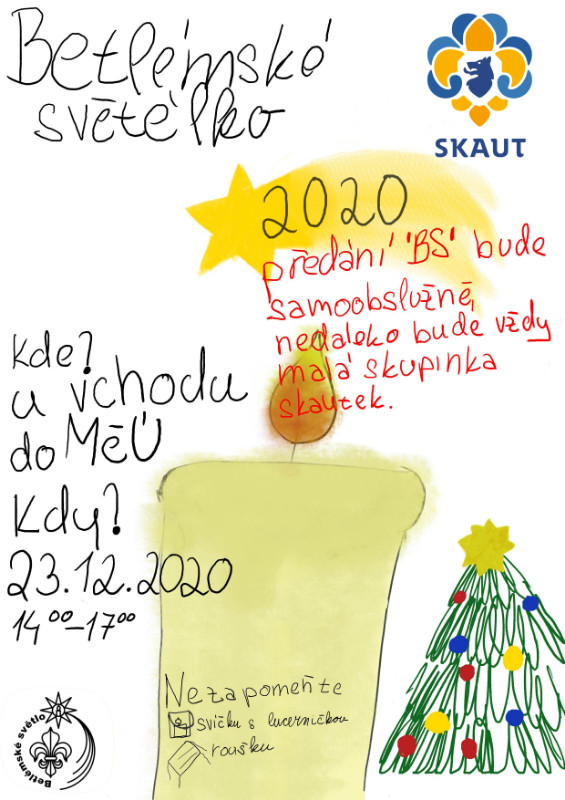 Betlémské
světélko
SKAUT
2020
předání 'BS' bude
samoobslužné,
nedaleko bude vždy
malá skupinka
skautek.
Kde?
u vchodu
do MěÚ
Kdy?
23.12.2020
14⁰⁰-17⁰⁰
Nezapomeňte
svíčku s lucerničkou
roušku
Betlémské světlo